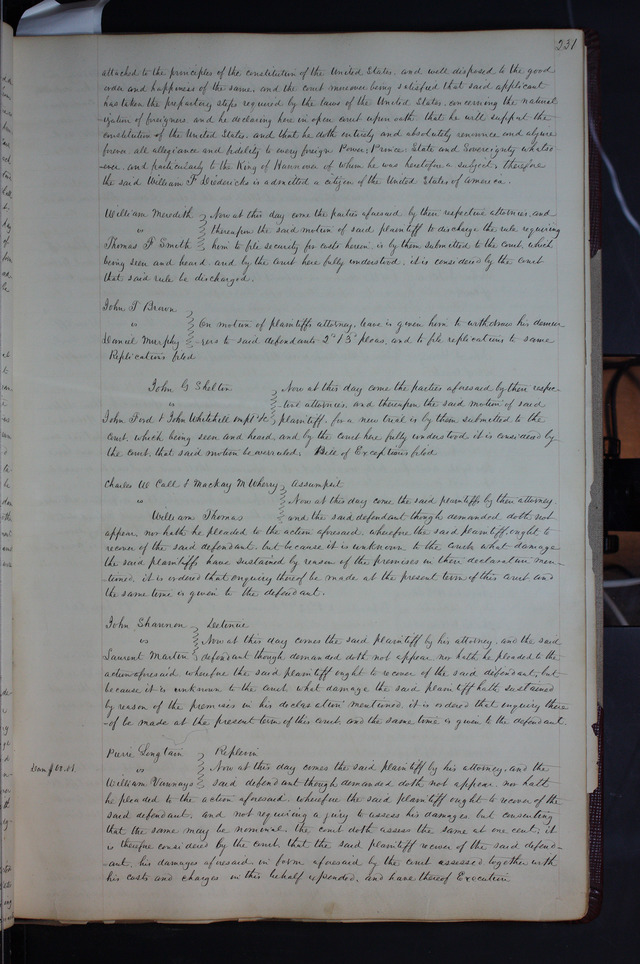 231
attached to the principles of the constitution of the United States, and well disposed to the good
order and happiness of the same, and the court moreover being satisfied that said applicant
has taken the preparatory steps required by the laws of the United States, concerning the natural-
-ization of foreigners and he declaring here in open court upon oath that he will support the
constitution of the United States, and that he doth entirely and absolutely renounce and abjure
forever, all allegiance and fidelity to every foreign Power, Prince, State and Sovereignty whatso-
-ever, and particularly to the King of Hannover of whom he was heretofore a subject, therefore
the said William F Diedericks is admitted a citizen of the United States of America.
William Meredith Now at this day come the parties aforesaid by their respective attornies, and
vs thereupon the said motion of said plaintiff to discharge the rule requiring
Thomas F Smith him to file security for costs herein is by them submitted to the court, which
being seen and heard, and by the court here fully understood, it is considered by the court
that said rule be discharged.
John T Brown
vs On motion of plaintiffs attorney, leave is given him to withdraw his demur-
Daniel Murphy -rers to said defendants 2d & 3d pleas, and to file replications to same
Replications filed
John G Shelton Now at this day come the parties aforesaid by their respec-
vs -tive attornies, and thereupon the said motion of said
John Ford & John Whitehill impl &c plaintiff, for a new trial is by them submitted to the
court, which being seen and heard, and by the court here fully understood it is considered by
the court, that said motion be overruled. Bill of Exceptions filed
Charles W Call & Mackay M Wherry Assumpsit
vs Now at this day come the said plaintiffs by their attorney
William Thomas and the said defendant though demanded doth not
appear, nor hath he pleaded to the action aforesaid, wherefore the said plaintiff, ought to
recover of the said defendant, but because it is unknown to the court what damage
the said plaintiffs have sustained by reason of the premises in their declaration men-
-tioned, it is ordered that enquiry thereof be made at the present term of this court and
the same time is given to the defendant.
John Shannon Detinue
vs Now at this day comes the said plaintiff by his attorney, and the said
Laurent Martin defendant though demanded doth not appear nor hath he pleaded to the
action aforesaid wherefore the said plaintiff ought to recover of the said defendant, but
because it is unknown to the court what damage the said plaintiff hath sustained
by reason of the premises in his declaration mentioned, it is ordered that enquiry there-
-of be made at the present term of this court, and the same time is given to the defendant.
Pierre Longtain Replevin
Dam $00.01. vs Now at this day comes the said plaintiff by his attorney, and the
William said defendant though demanded doth not appear, nor hath
he pleaded to the action aforesaid, wherefore the said plaintiff ought to recover of the
said defendant, and not requiring a jury to assess his damages, but consenting
that the same may be nominal, the court doth assess the same at one cent, it
is therefore considered by the court, that the said plaintiff recover of the said defend-
-ant, his damages aforesaid in form aforesaid by the court assessed together with
his costs and charges in this behalf expended, and have thereof Execution